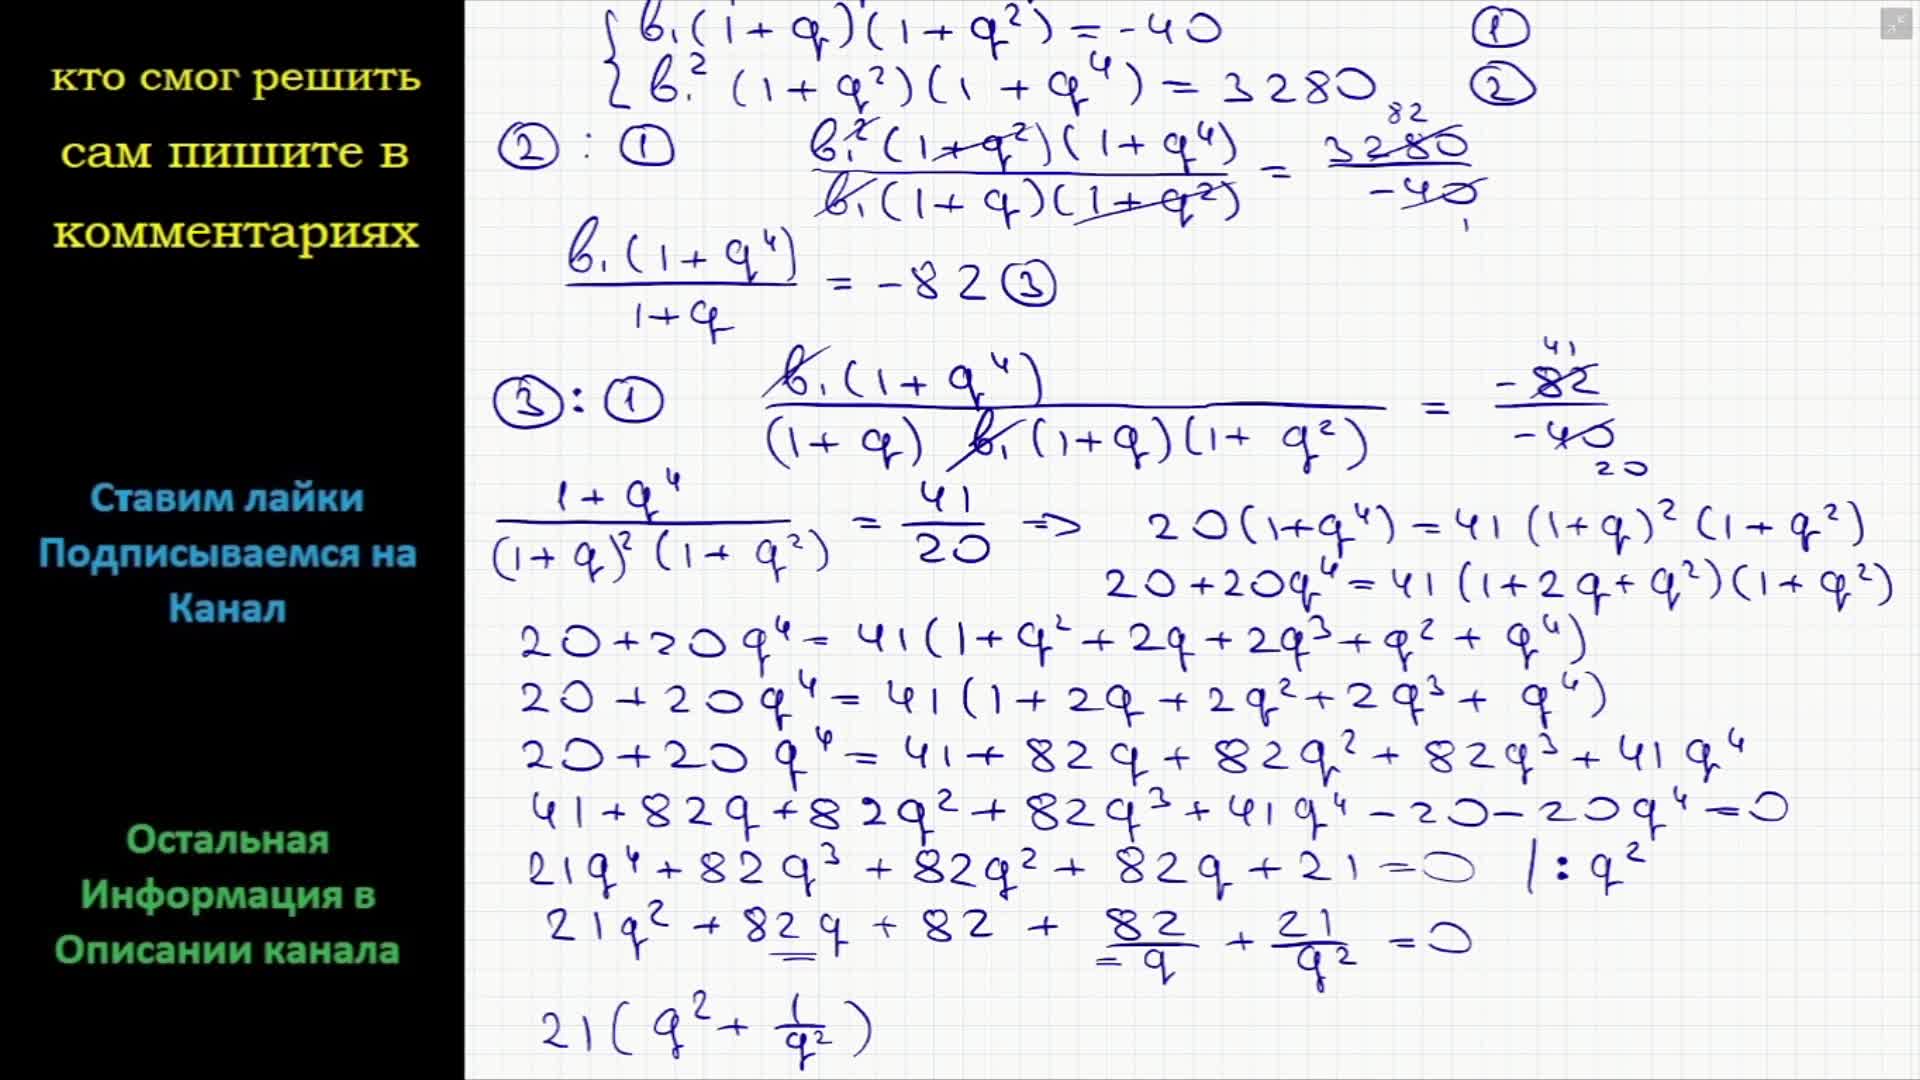 кто смог решить
сам пишите в
комментариях
Ставим лайки
Подписываемся на
Канал
Остальная
Информация в
Описании канала
{ b₁(1+q)(1+q²)=-40 ①
b₁²(1+q²)(1+q⁴)=3280 ②
②:① b₁²(1+q²)(1+q⁴)/b₁(1+q)(1+q²) = 3280/-40 82 1
b₁(1+q⁴)/1+q = -82 ③
③:① b₁(1+q⁴)/(1+q) b₁(1+q)(1+q²) = -82/-40 41 20
1+q⁴/(1+q)²(1+q²) = 41/20 => 20(1+q⁴)=41(1+q)²(1+q²)
20+20q⁴=41(1+2q+q²)(1+q²)
20+20q⁴=41(1+q²+2q+2q³+q²+q⁴)
20+20q⁴=41(1+2q+2q²+2q³+q⁴)
20+20q⁴=41+82q+82q²+82q³+41q⁴
41+82q+82q²+82q³+41q⁴-20-20q⁴=0
21q⁴+82q³+82q²+82q+21=0 |:q²
21q²+82q+82+82/q+21/q²=0
21(q²+1/q²)